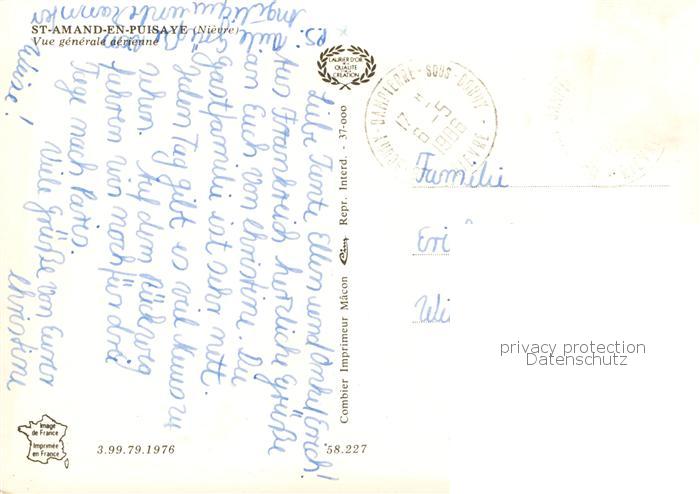 ST-AMAND-EN-PUISAYE (Nièvre)
Vue générale aérienne
LAURIER D'OR
DE LA
QUALITÉ
CRÉATION
Liebe Tante Ellen und Onkel Erich!
Aus Frankreich herzliche Grüße
an Euch von Christine. Die
Gastfamilie ist sehr nett.
Jeden Tag gibt es viel Neues zu
sehen. Auf dem Rückweg
fahren wir noch für drei
Tage nach Paris.
Viele Grüße von Eurer
Christine
PS: Viele Grüße
Combier Imprimeur Mâcon Cim Repr. Interd. - 37-000
DAMPIERRE-SOUS-BOUHY
NIEVRE
17 H
6-5
1986
Familie
Eri
Wi
privacy protection
Datenschutz
Image
de France
Imprimée
en France
3.99.79.1976
58.227